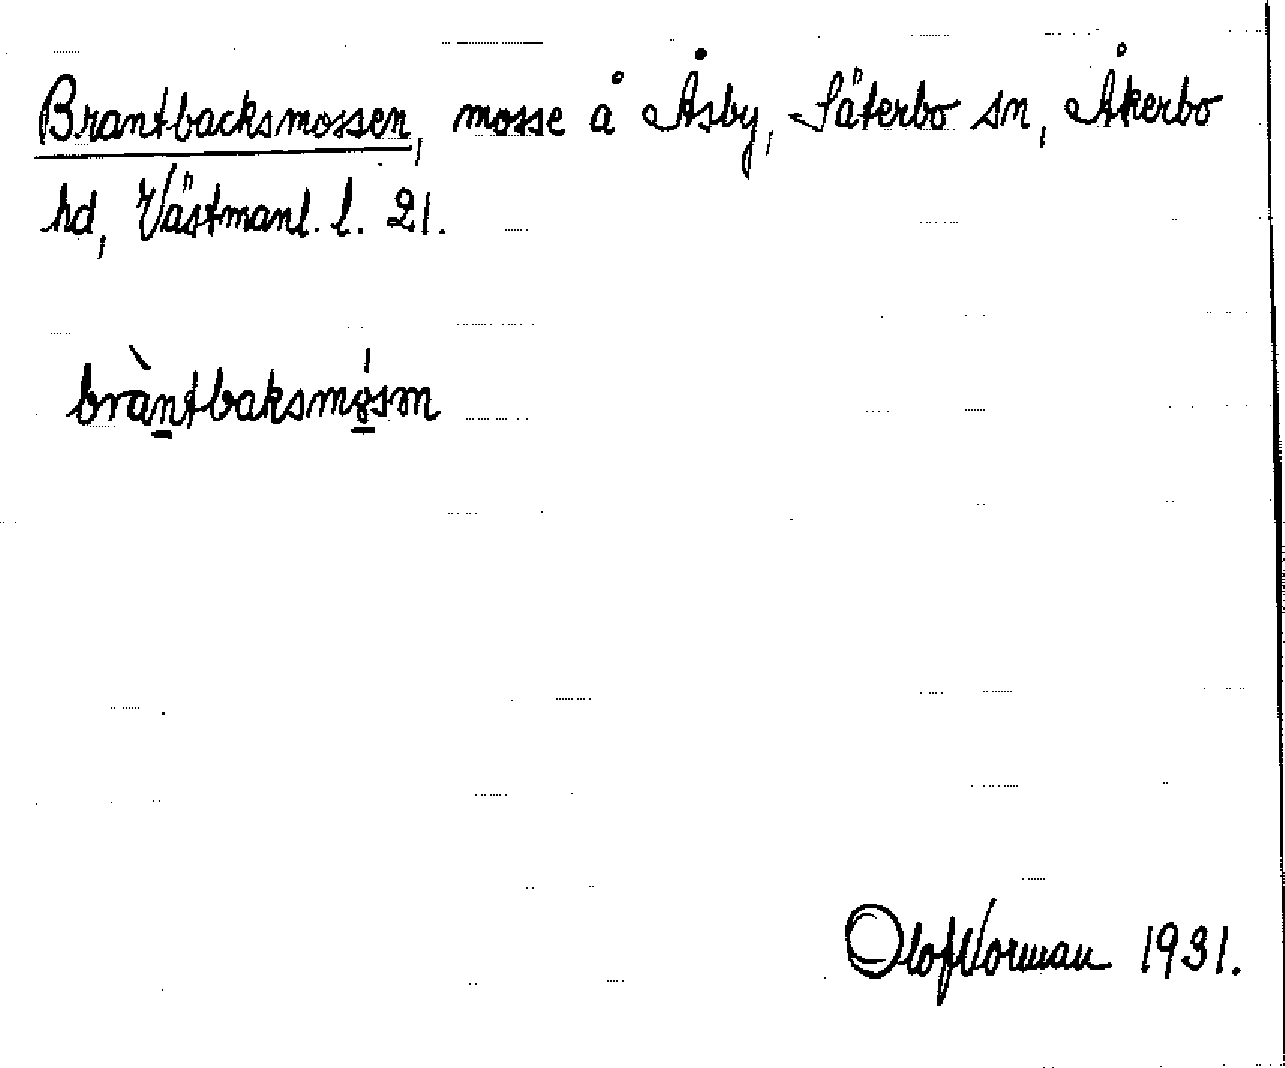 Brantbacksmossen, mosse å Åsby, Säterbo sn, Åkerbo
hd, Västmanl. l. 21.
bràntbaksmǿsm
Olof Norman 1931.